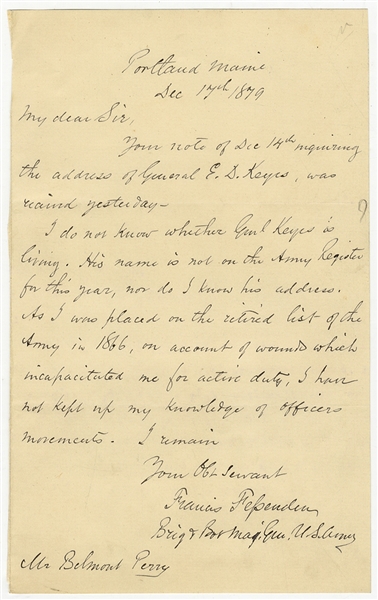 Portland Maine
Dec 17th 1879
My dear Sir,
Your note of Dec 14th inquiring
the address of General E. D. Keyes, was
received yesterday—
I do not know whether Genl Keyes is
living. His name is not on the Army Register
for this year, nor do I know his address.
As I was placed on the retired list of the
Army in 1866, on account of wounds which
incapacitated me for active duty, I have
not kept up my knowledge of officers
movements. I remain
Your Obt Servant
Francis Fessenden
Brig & Bvt Maj. Gen. U.S. Army
Mr Belmont Perry